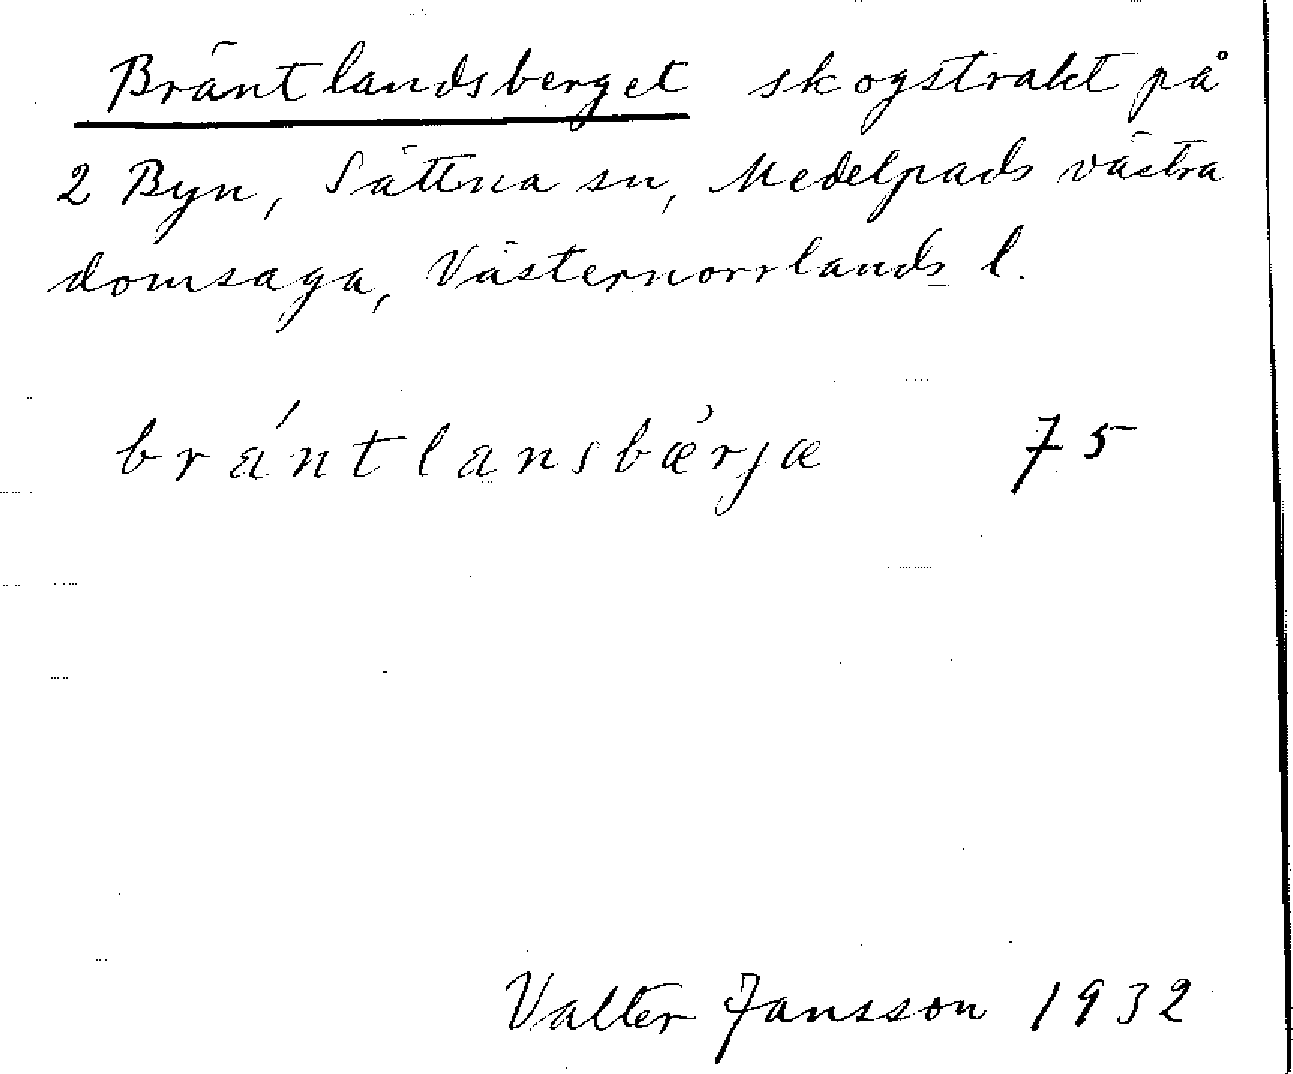 Bräntlandsberget skogstrakt på
2 Byn, Sättna sn, Medelpads västra
domsaga, Västernorrlands l.
brántlansbæ̀rjæ 75
Valter Jansson 1932